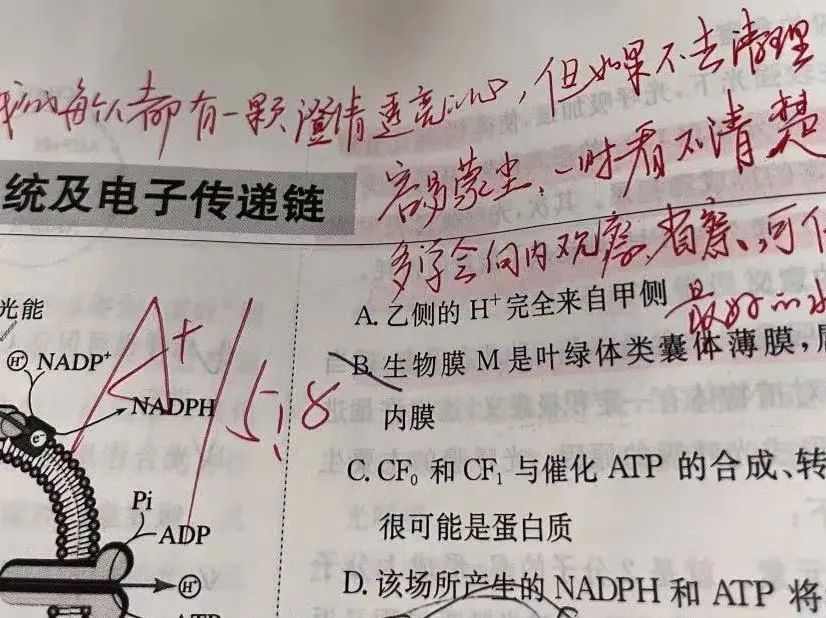 我们每个人都有一颗澄清透亮的心，但如果不去清理
容易蒙尘、一时看不清楚
多学会向内观察、省察、可
最好的
统及电子传递链
光能
H⁺ NADP⁺
NADPH
e⁻
A+ / 5.8
Pi
ADP
H⁺
ATP
A. 乙侧的 H⁺ 完全来自甲侧
B. 生物膜 M 是叶绿体类囊体薄膜，
内膜
C. CF₀ 和 CF₁ 与催化 ATP 的合成、转
很可能是蛋白质
D. 该场所产生的 NADPH 和 ATP 将